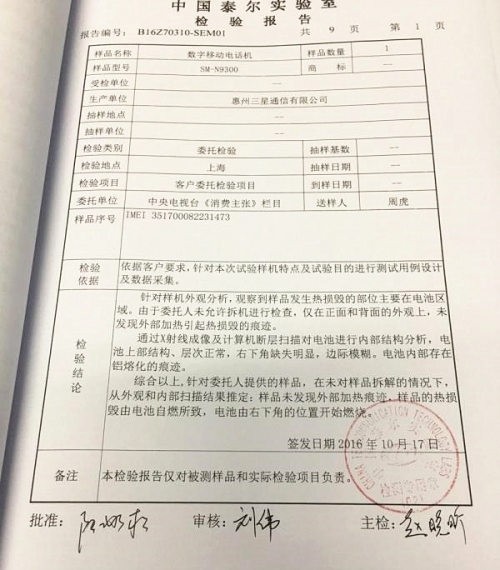 中国泰尔实验室
检验报告
报告编号: B16Z70310-SEM01 共 9 页 第 1 页
样品名称 数字移动电话机 样品数量 1
样品型号 SM-N9300 商标 —
受检单位 —
生产单位 惠州三星通信有限公司
抽样地点 —
抽样单位 —
检验类别 委托检验 抽样基数 —
检验地点 上海 抽样日期 —
检验项目 客户委托检验项目 到样日期 —
委托单位 中央电视台《消费主张》栏目 送样人 周虎
样品序号 IMEI 351700082231473
检验依据 依据客户要求,针对本次试验样机特点及试验目的进行测试用例设计
及数据采集。
检验结论
针对样机外观分析,观察到样品发生热损毁的部位主要在电池区
域。由于委托人未允许拆机进行检查,仅在正面和背面的外观上,未
发现外部加热引起热损毁的痕迹。
通过X射线成像及计算机断层扫描对电池进行内部结构分析,电
池上部结构、层次正常,右下角缺失明显,边际模糊。电池内部存在
铝熔化的痕迹。
综合以上,针对委托人提供的样品,在未对样品拆解的情况下,
从外观和内部扫描结果推定:样品未发现外部加热痕迹,样品的热损
毁由电池自燃所致,电池由右下角的位置开始燃烧。
签发日期 2016 年 10 月 17 日
备注 本检验报告仅对被测样品和实际检验项目负责。
批准: 审核: 刘伟 主检: 赵晓昕